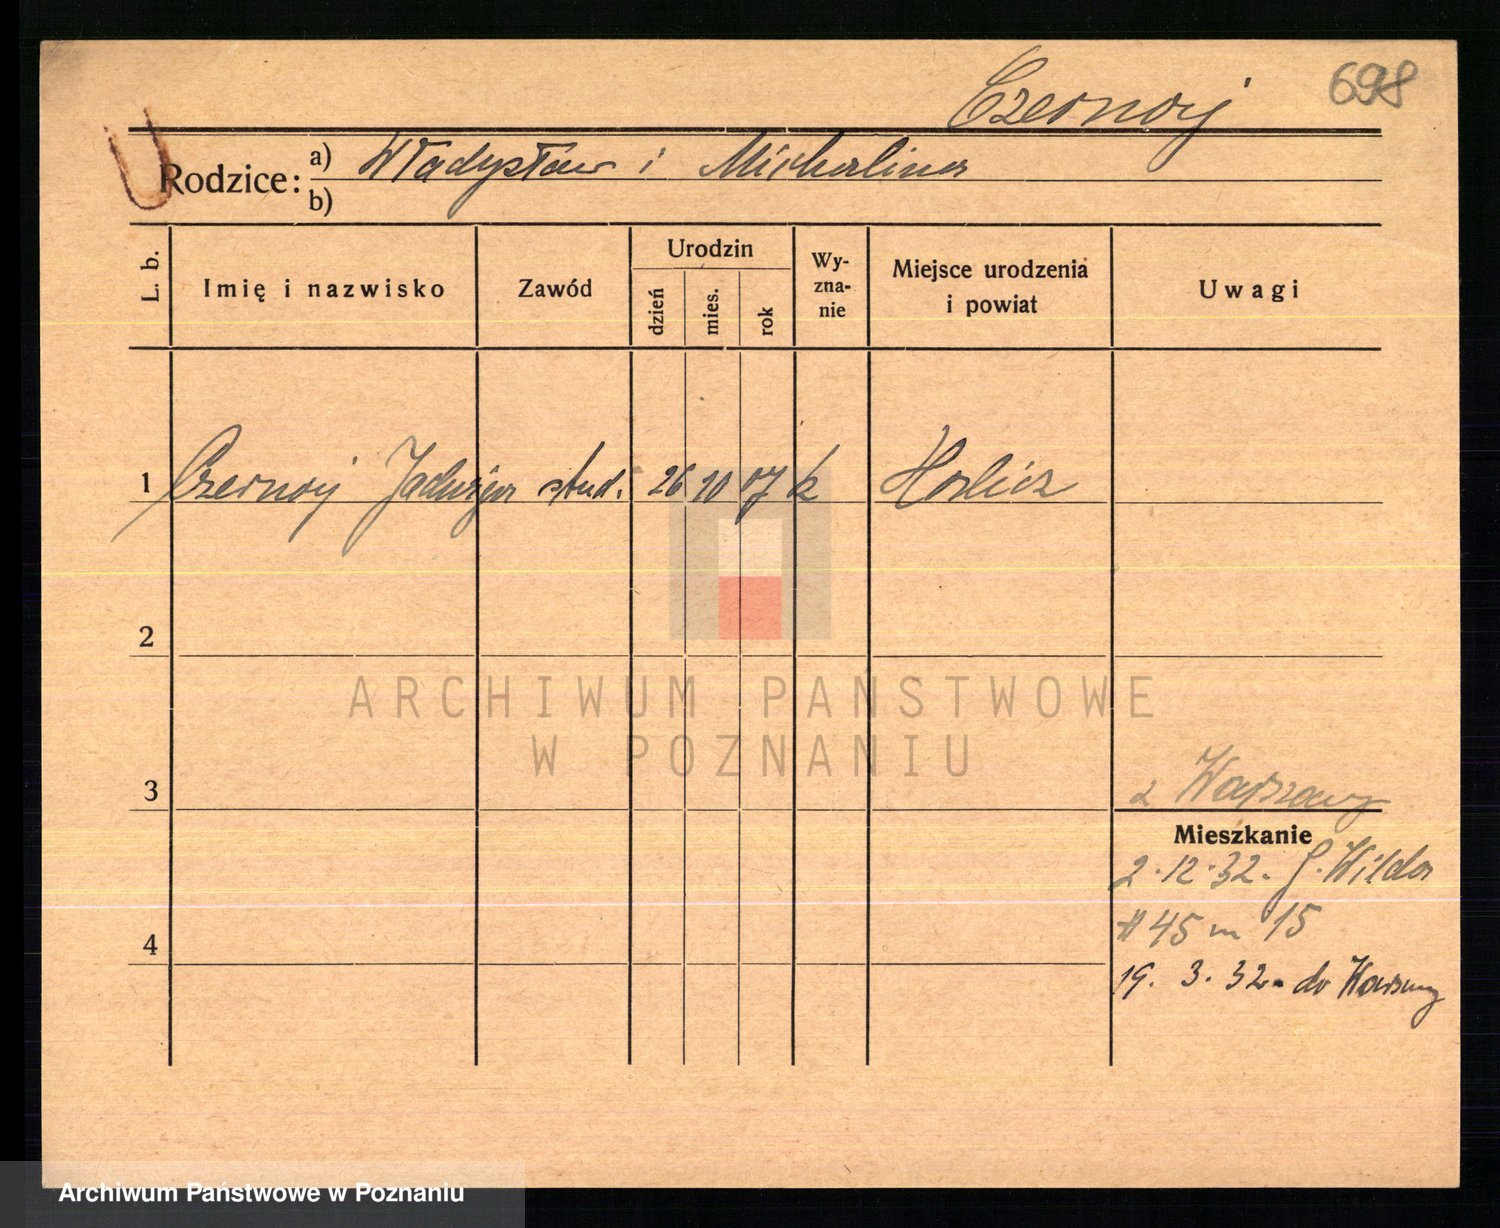 Czernoij 698
U
Rodzice: a) Władysław i Michalina
b)
L. b.
Imię i nazwisko
Zawód
Urodzin
dzień
mies.
rok
Wy-
zna-
nie
Miejsce urodzenia
i powiat
Uwagi
1 Czernoij Jadwiga stud. 26 10 07 k Halicz
2
3
z Warszawy
Mieszkanie
2.12.32. G. Wilda
45 m 15
4
19. 3. 32. do Warszawy
ARCHIWUM PAŃSTWOWE
W POZNANIU
Archiwum Państwowe w Poznaniu